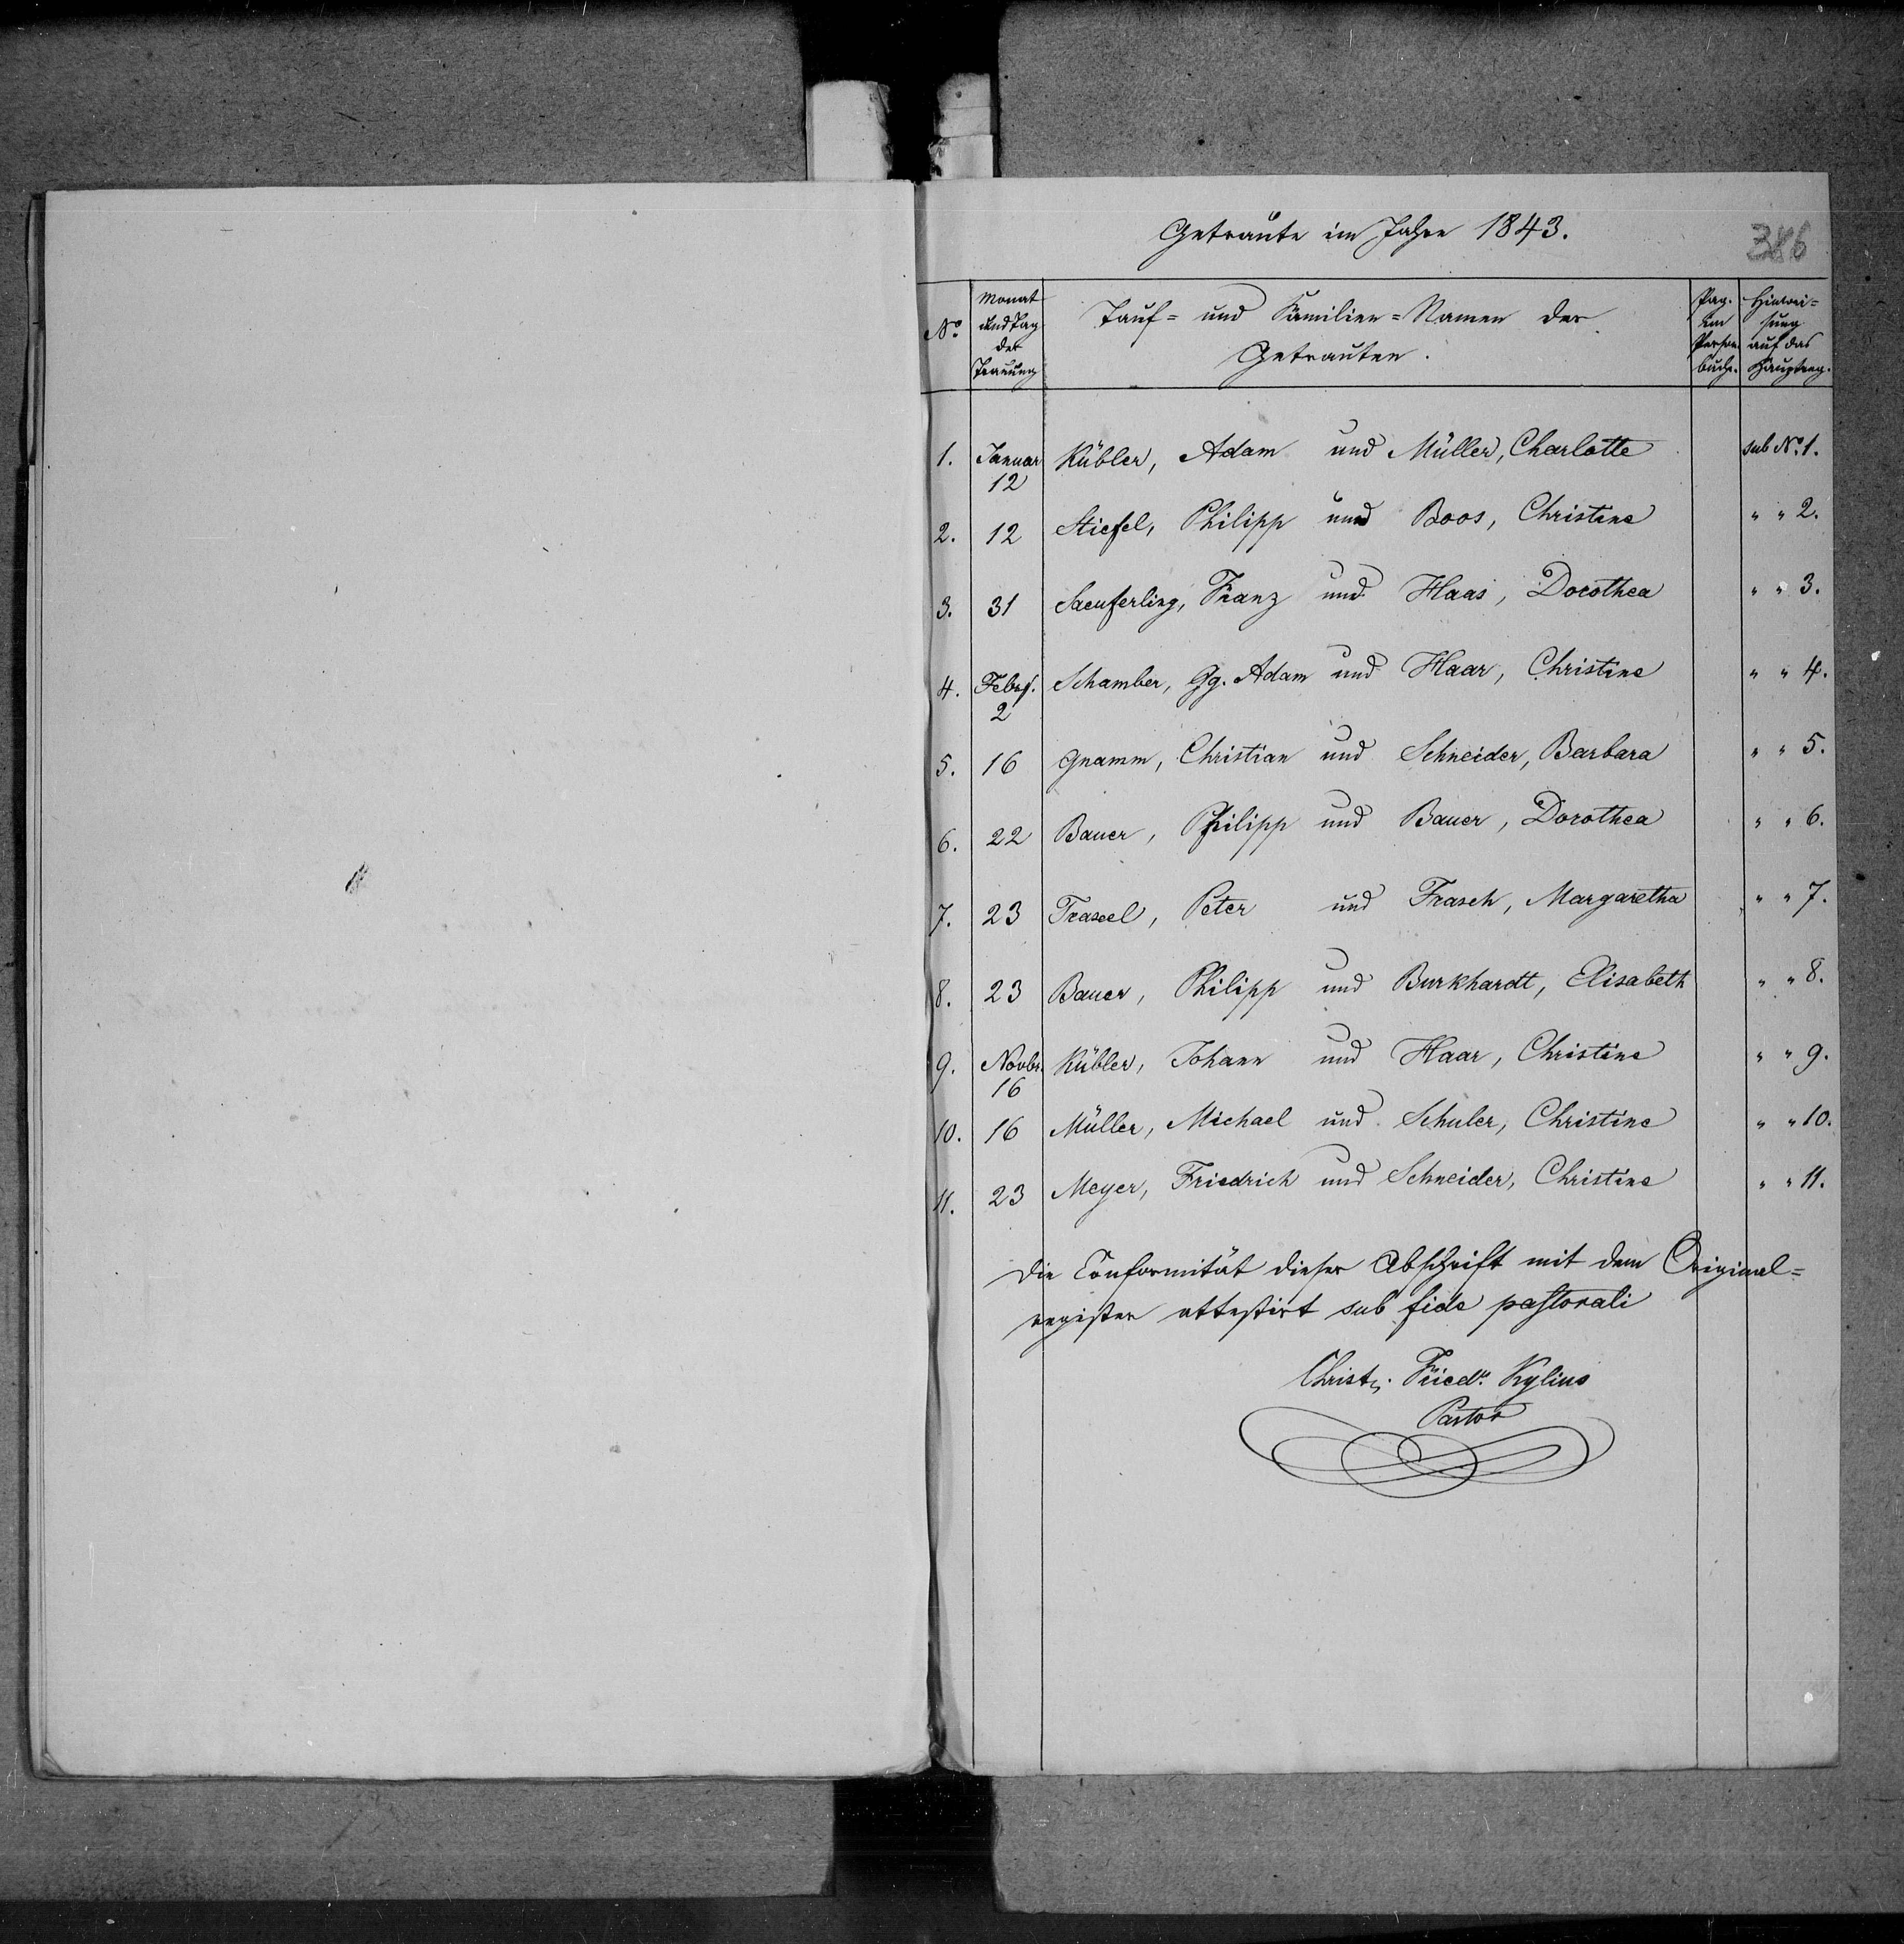 Getraute im Jahre 1843.
386
No.
Monat und Tag der Trauung
Tauf= und Familien=Namen der Getrauten.
Pag. im Person. buche.
Hinwei= sung auf das Hauptreg.
1. Januar 12 Kübler, Adam und Müller, Charlotte sub No. 1.
2. 12 Stiefel, Philipp und Boos, Christine " " 2.
3. 31 Saeuferling, Franz und Haas, Dorothea " " 3.
4. Febr. 2 Schamber, Gg. Adam und Haar, Christine " " 4.
5. 16 Gnamm, Christian und Schneider, Barbara " " 5.
6. 22 Bauer, Philipp und Bauer, Dorothea " " 6.
7. 23 Trascel, Peter und Frasch, Margaretha " " 7.
8. 23 Bauer, Philipp und Burkhardt, Elisabeth " " 8.
9. Novbr. 16 Kübler, Johann und Haar, Christine " " 9.
10. 16 Müller, Michael und Schuler, Christine " " 10.
11. 23 Meyer, Friedrich und Schneider, Christine " " 11.
Die Conformität dieser Abschrift mit dem Original=
register attestirt sub fide pastorali
Christn. Friedr. Kylius
Pastor